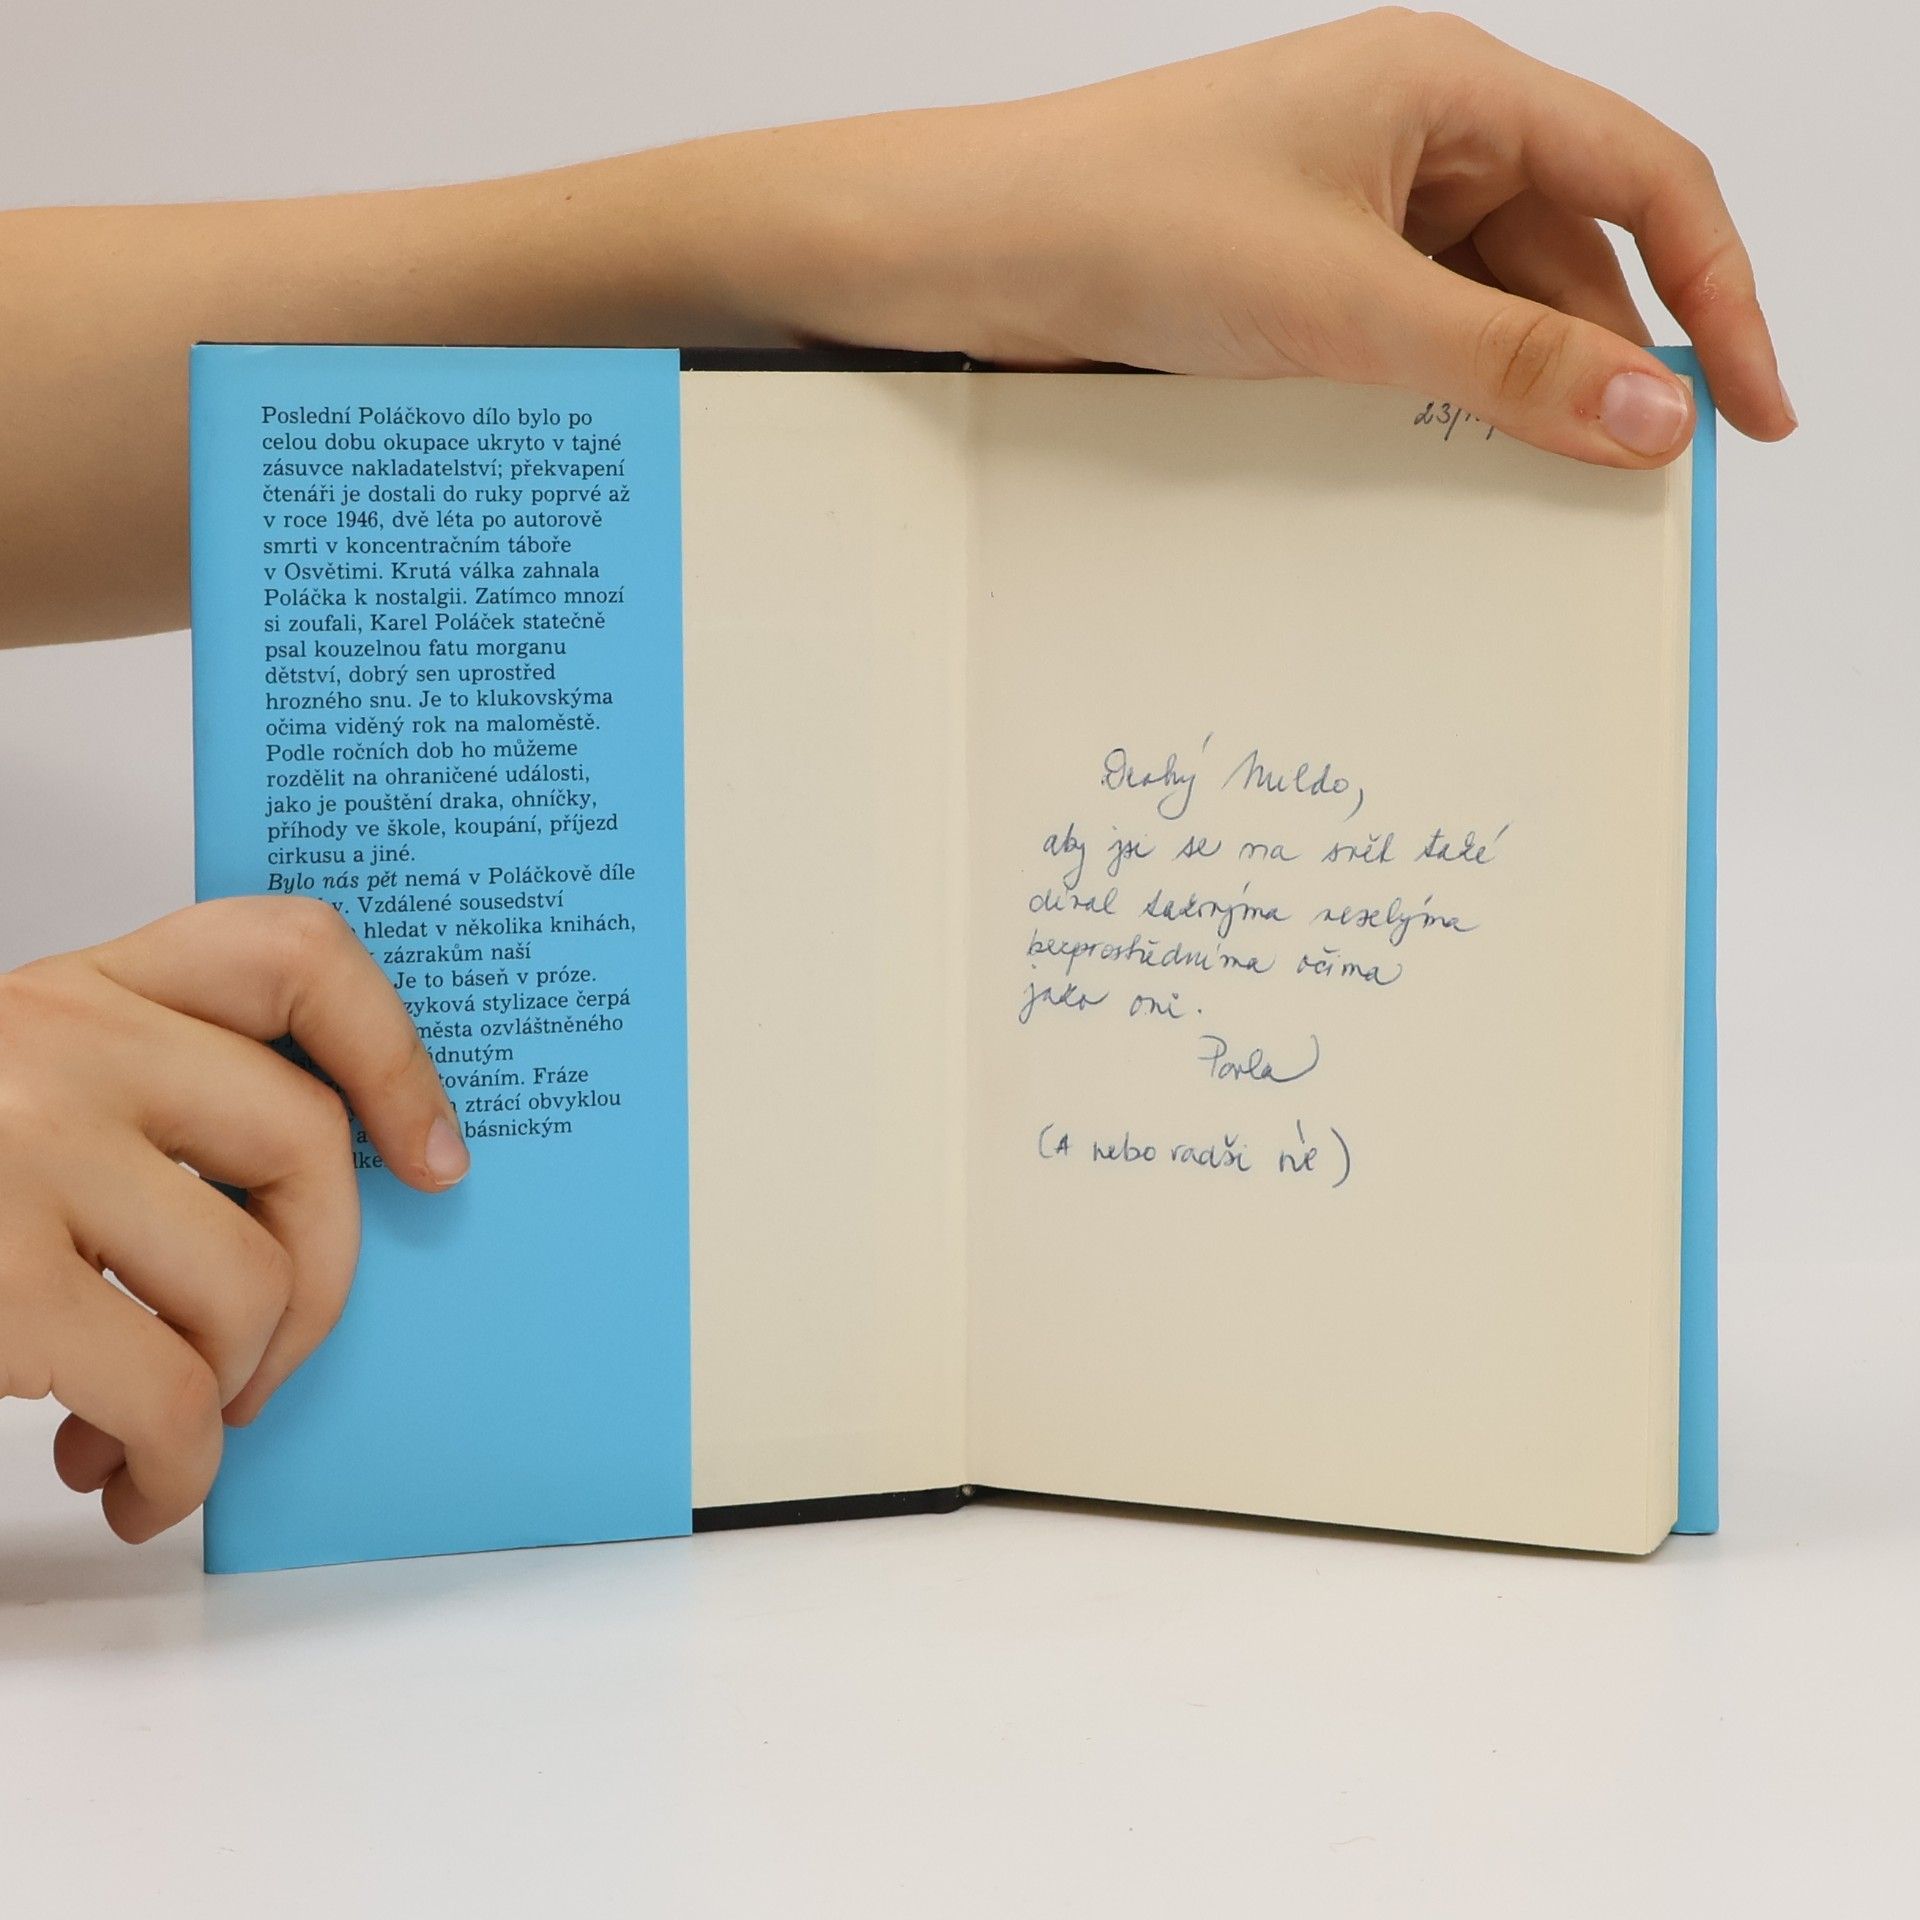 Poslední Poláčkovo dílo bylo po
celou dobu okupace ukryto v tajné
zásuvce nakladatelství; překvapení
čtenáři je dostali do ruky poprvé až
v roce 1946, dvě léta po autorově
smrti v koncentračním táboře
v Osvětimi. Krutá válka zahnala
Poláčka k nostalgii. Zatímco mnozí
si zoufali, Karel Poláček statečně
psal kouzelnou fatu morganu
dětství, dobrý sen uprostřed
hrozného snu. Je to klukovskýma
očima viděný rok na maloměstě.
Podle ročních dob ho můžeme
rozdělit na ohraničené události,
jako je pouštění draka, ohníčky,
příhody ve škole, koupání, příjezd
cirkusu a jiné.
Bylo nás pět nemá v Poláčkově díle
Vzdálené sousedství
hledat v několika knihách,
zázrakům naší
Je to báseň v próze.
stylizace čerpá
ozvláštněného
Fráze
ztrácí obvyklou
básnickým
23/
Drahý Mildo,
aby jsi se na svět také
díval takovýma veselýma
bezprostředníma očima
jako oni.
Pavla
(A nebo radši né)